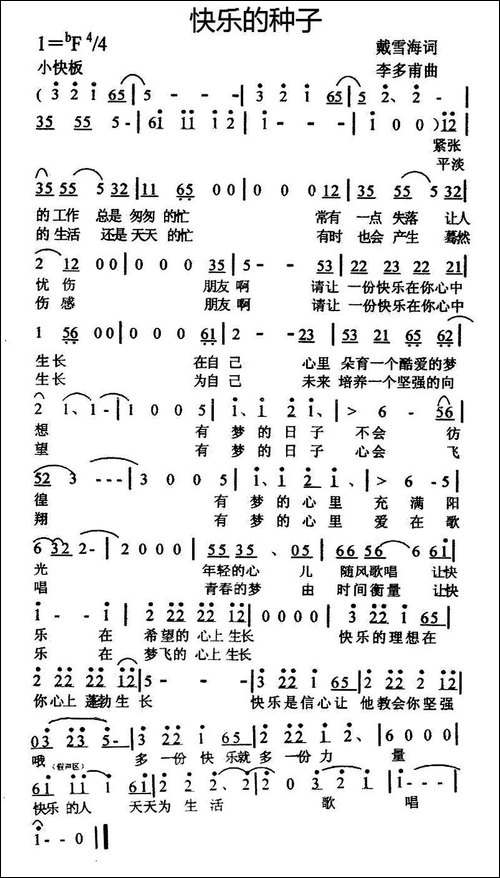 快乐的种子
1=ᵇF 4/4
戴雪海词
小快板
李多甫曲
(3 2 i 65|5 - - -|3 2 i 65|5 2、2 -|
35 55 5 - -|61 ii i2|i - - -|i 0 0)i2|
紧张
平淡
35 55 5 32|11 65 0 0|0 0 0 12|35 55 5 32|
的工作 总是 匆匆 的忙 常有 一点 失落 让人
的生活 还是 天天 的忙 有时 也会 产生 蓦然
2 12 0 0|0 0 0 35|5 - - 53|22 23 22 21|
忧伤 朋友 啊 请让 一份快乐在你心中
伤感 朋友 啊 请让 一份快乐在你心中
1 56 0 0|0 0 0 61|2 - - 23|53 55 21 65 62|
生长 在自 己 心里 朵育一个酷爱的梦
生长 为自 己 未来 培养一个坚强的向
2 1、1 -|1 0 0 5|i、i 2 i、|> 6 - 56|
想 有 梦 的 日 子 不会 彷
望 有 梦 的 日 子 心会 飞
52 3 - - -|3 0 0 5|i、i 2 i、|> 6 - 5|
徨 有 梦 的 心 里 充 满 阳
翔 有 梦 的 心 里 爱 在 歌
6 32 2 -|2 0 0 0|55 35、05|66 56 6 6i|
光 年轻的心 儿 随风歌唱 让快
唱 青春的梦 由 时间衡量 让快
i - - i|2 22 22 i2|i - - -|3 22 i 65|
乐 在 希望的 心上 生长 快乐的理想在
乐 在 梦飞的 心上 生长
2 22 22 i2|5 - - -|3 22 i 65|2 22 22 i2|
你心上 蓬勃生 长 快乐是信心让 他教会你坚强
03 23 5 -|3 22 i 65|2 22 i2 2、|6 0 0 0|
哦 (假声区) 多 一份 快 乐就 多 一份 力 量
6i ii i 6i|2 2 2 2 0|0 3 2 i|i - - -|
快乐 的人 天天为 生 活 歌 唱
i - - 0‖